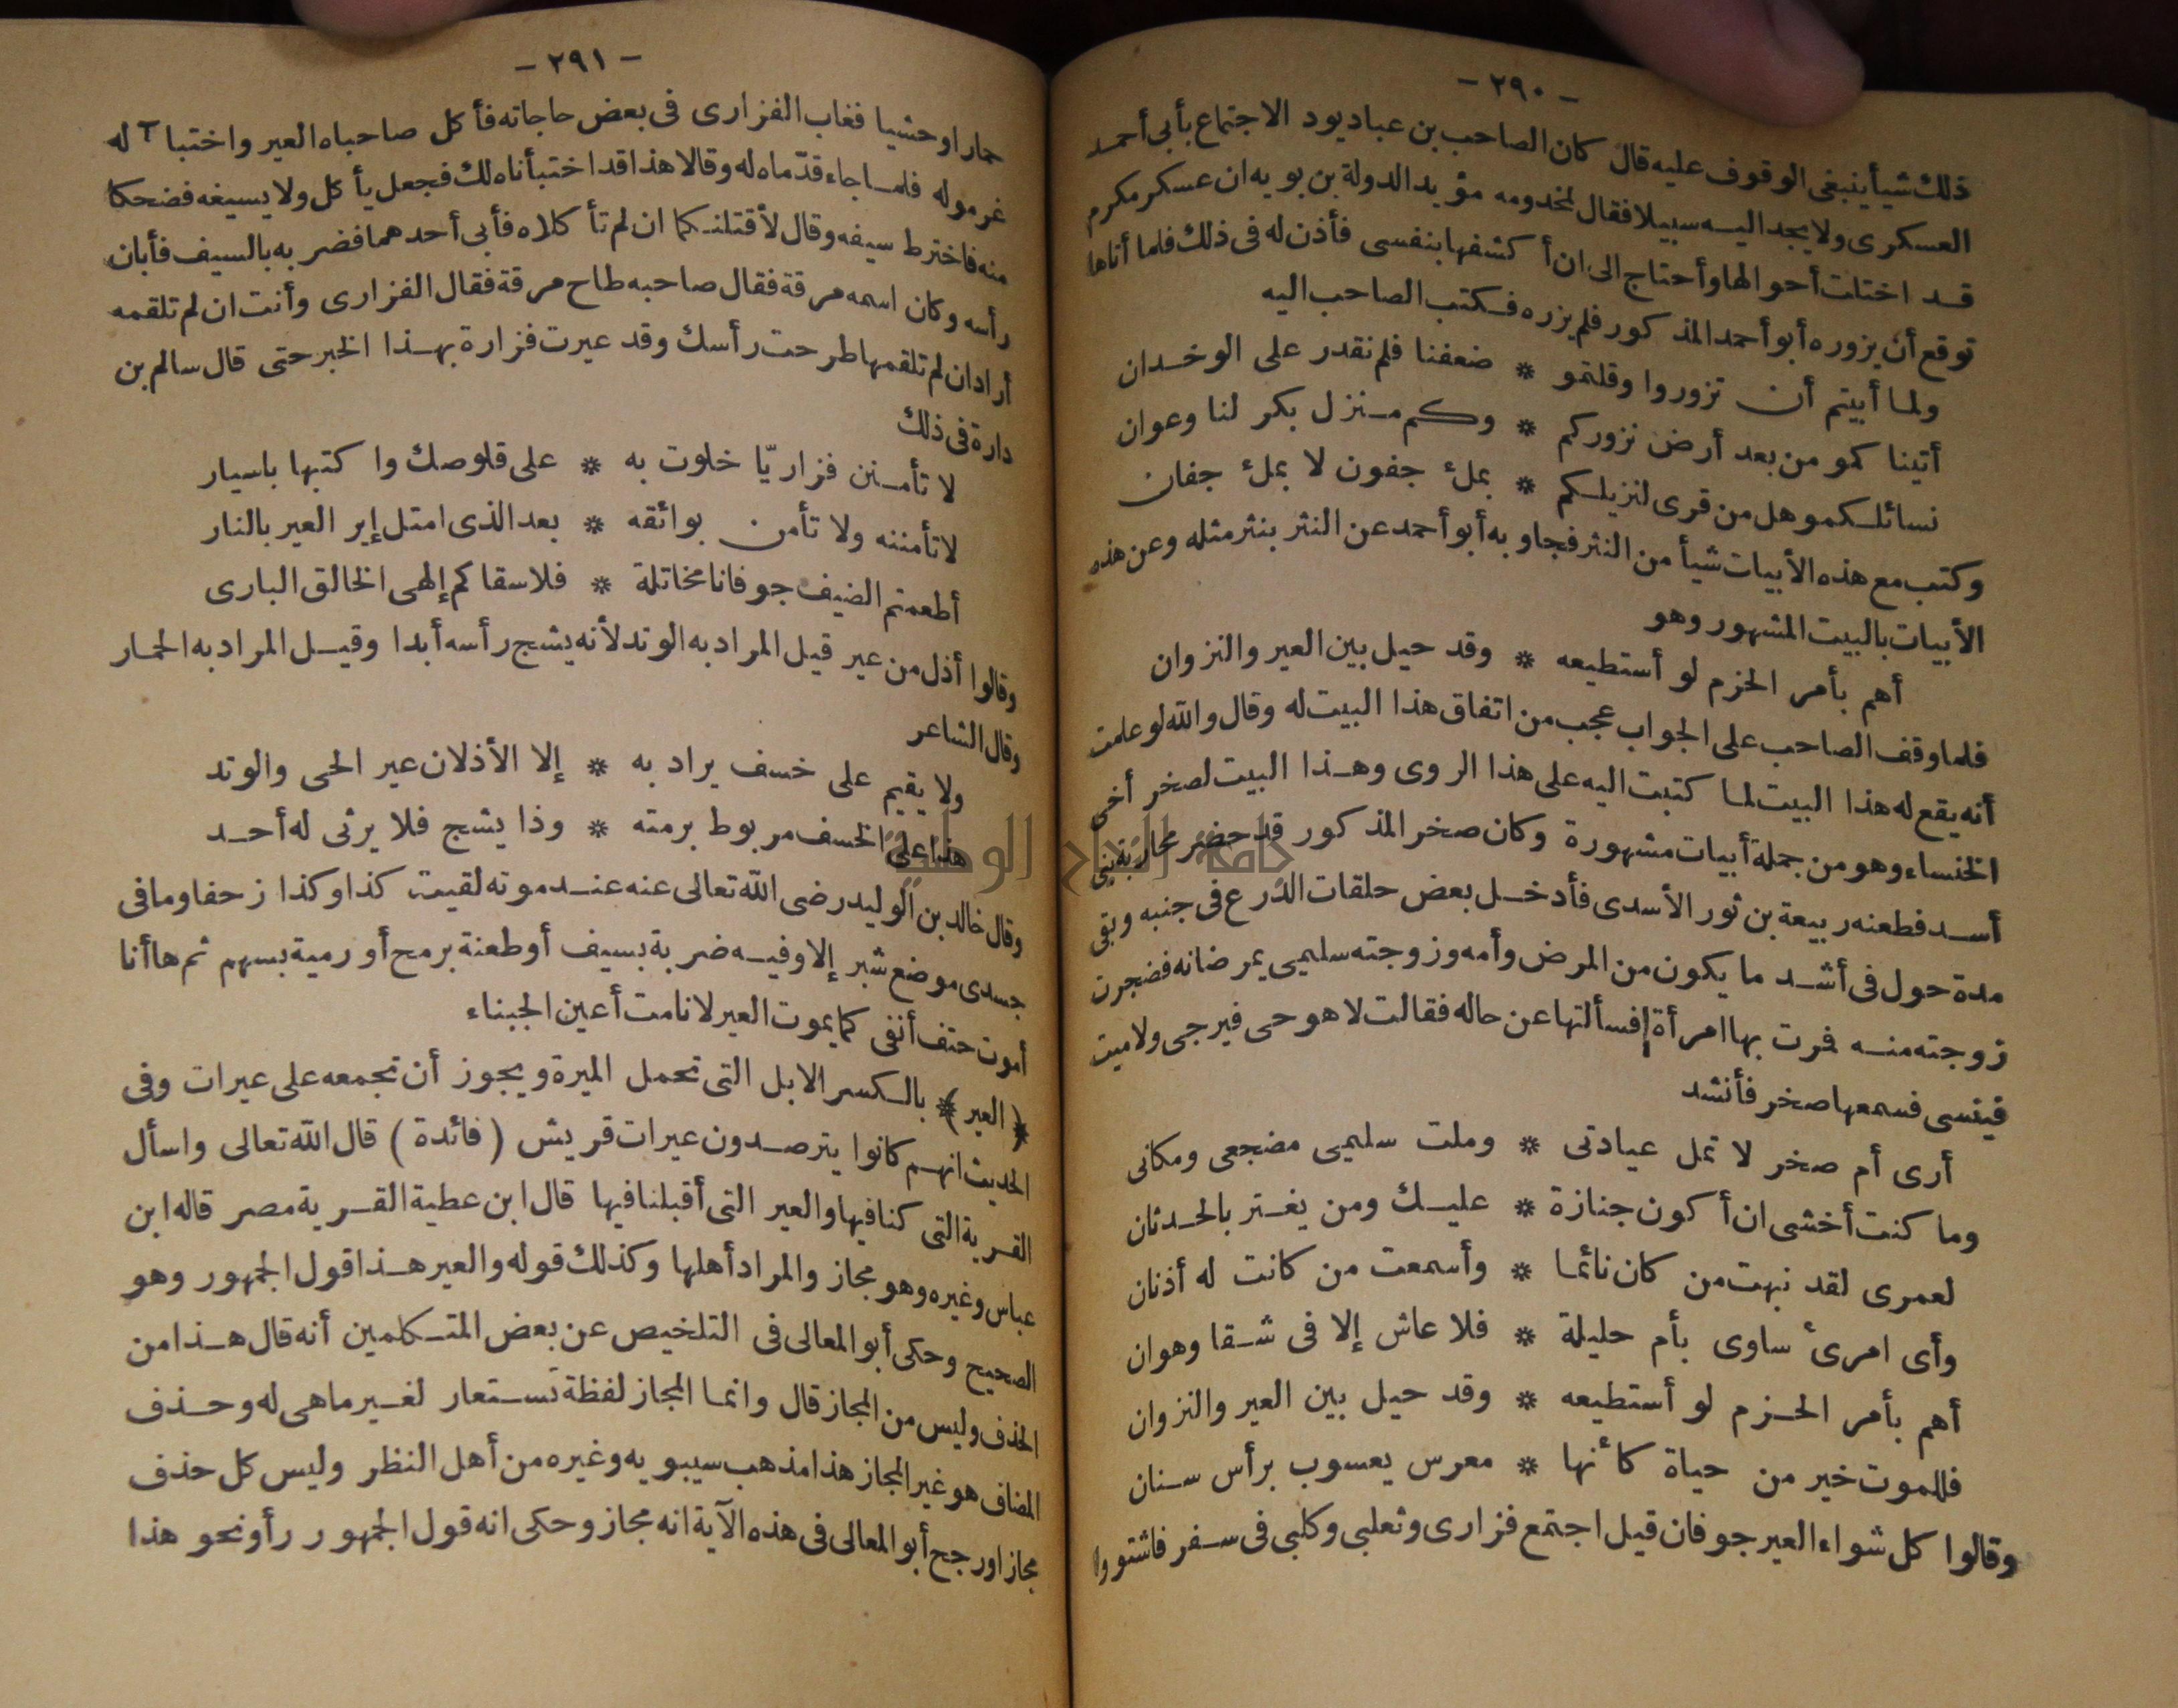 - ٢٩٠ -
ذلك شيأ ينبغى الوقوف عليه قال كان الصاحب بن عباد يود الاجتماع بأبى أحمد
العسكرى ولا يجد اليه سبيلا فقال لمخدومه مؤيد الدولة بن بويه ان عسكر مكرم
قد اختلت أحوالها وأحتاج الى ان أكشفها بنفسى فأذن له فى ذلك فلما أتاها
توقع أن يزوره أبو أحمد المذكور فلم يزره فكتب الصاحب اليه
ولما أبيتم أن تزوروا وقلتمو * ضعفنا فلم نقدر على الوخدان
أتينا كمو من بعد أرض نزوركم * وكم منزل بكر لنا وعوان
نسائلكمو هل من قرى لنزيلكم * بملء جفون لا بملء جفان
وكتب مع هذه الأبيات شيأ من النثر فجاوبه أبو أحمد عن النثر بنثر مثله وعن هذه
الأبيات بالبيت المشهور وهو
أهم بأمر الحزم لو أستطيعه * وقد حيل بين العير والنزوان
فلما وقف الصاحب على الجواب عجب من اتفاق هذا البيت له وقال والله لو علمت
أنه يقع له هذا البيت لما كتبت اليه على هذا الروى وهذا البيت لصخر أخى
الخنساء وهو من جملة أبيات مشهورة وكان صخر المذكور قد حضر محاربة بنى
أسد فطعنه ربيعة بن ثور الأسدى فأدخل بعض حلقات الدرع فى جنبه وبقى
مدة حول فى أشد ما يكون من المرض وأمه وزوجته سليمى يمرضانه فضجرت
زوجته منه فمرت بها امرأة فسألتها عن حاله فقالت لا هو حى فيرجى ولا ميت
فينسى فسمعها صخر فأنشد
أرى أم صخر لا تمل عيادتى * وملت سليمى مضجعى ومكانى
وما كنت أخشى ان أكون جنازة * عليك ومن يغتر بالحدثان
لعمرى لقد نبهت من كان نائما * وأسمعت من كانت له أذنان
وأى امرئ ساوى بأم حليلة * فلا عاش إلا فى شقا وهوان
أهم بأمر الحزم لو أستطيعه * وقد حيل بين العير والنزوان
فللموت خير من حياة كأنها * معرس يعسوب برأس سنان
وقالوا كل شواء العير جوفان قيل اجتمع فزارى وثعلبى وكلبى فى سفر فاشتووا
- ٢٩١ -
حمارا وحشيا فغاب الفزارى فى بعض حاجاته فأكل صاحباه العير واختبا آ له
غرموله فلما جاء قدّماه له وقالا هذا قد اختبأناه لك فجعل يأكل ولا يسيغه فضحكا
منه فاخترط سيفه وقال لأقتلنكما ان لم تأكلاه فأبى أحدهما فضربه بالسيف فأبان
رأسه وكان اسمه مرقة فقال صاحبه طاح مرقة فقال الفزارى وأنت ان لم تلقمه
أراد ان لم تلقمها طرحت رأسك وقد عيرت فزارة بهذا الخبر حتى قال سالم بن
دارة فى ذلك
لا تأمنن فزاريّا خلوت به * على قلوصك واكتبها باسيار
لا تأمننه ولا تأمن بوائقه * بعد الذى امتل إير العير بالنار
أطعمتم الضيف جوفانا مخاتلة * فلا سقاكم إلهى الخالق البارى
وقالوا أذل من عير قيل المراد به الوتد لأنه يشج رأسه أبدا وقيل المراد به الحمار
وقال الشاعر
ولا يقيم على خسف يراد به * إلا الأذلان عير الحى والوتد
هذا على الخسف مربوط برمته * وذا يشج فلا يرثى له أحد
وقال خالد بن الوليد رضى الله تعالى عنه عند موته لقيت كذا وكذا زحفا وما فى
جسدى موضع شبر إلا وفيه ضربة بسيف أو طعنة برمح أو رمية بسهم ثم ها أنا
أموت حتف أنفى كما يموت العير لا نامت أعين الجبناء
﴿العير﴾ بالكسر الابل التى تحمل الميرة ويجوز أن تجمعه على عيرات وفى
الحديث انهم كانوا يترصدون عيرات قريش (فائدة) قال الله تعالى واسأل
القرية التى كنا فيها والعير التى أقبلنا فيها قال ابن عطية القرية مصر قاله ابن
عباس وغيره وهو مجاز والمراد أهلها وكذلك قوله والعير هذا قول الجمهور وهو
الصحيح وحكى أبو المعالى فى التلخيص عن بعض المتكلمين أنه قال هذا من
الحذف وليس من المجاز قال وانما المجاز لفظة تستعار لغير ما هى له وحذف
المضاف هو غير المجاز هذا مذهب سيبويه وغيره من أهل النظر وليس كل حذف
مجازا ورجح أبو المعالى فى هذه الآية انه مجاز وحكى انه قول الجمهور رأونحو هذا
جامعة النجاح الوطنية